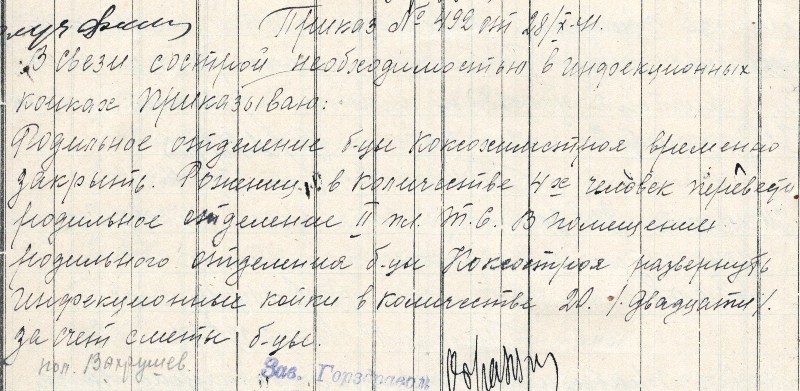 Приказ № 492 от 28/X-41.
В связи сострой необходимостью в инфекционных
койках Приказываю:
Родильное отделение б-цы Коксохимстроя временно
закрыть. Рожениц в количестве 4х человек перевести
родильное отделение II пл. Т.С. В помещение
родильного отделения б-цы Коксостроя развернуть
инфекционные койки в количестве 20. /двадцати/.
за счет сметы б-цы.
поп. Вахрушев.
Зав. Горздравом